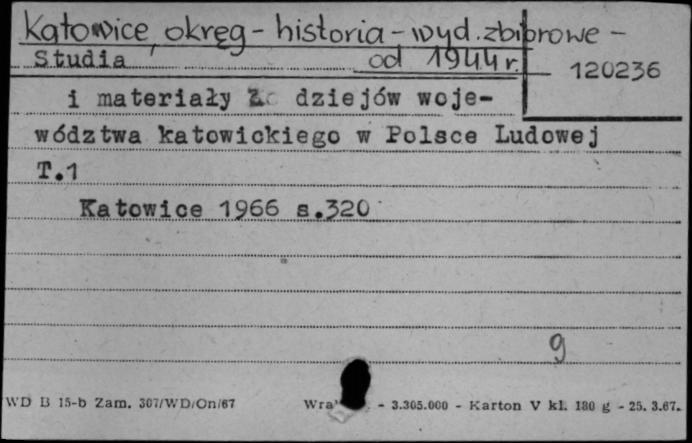 Katowice, okręg - historia - wyd. zbiorowe -
Studia od 1944 r.
120236
i materiały z dziejów woje-
wództwa katowickiego w Polsce Ludowej
T.1
Katowice 1966 s.320
9
WD B 15-b Zam. 307/WD/On/67 - 3.305.000 - Karton V kl. 180 g - 25. 3.67.